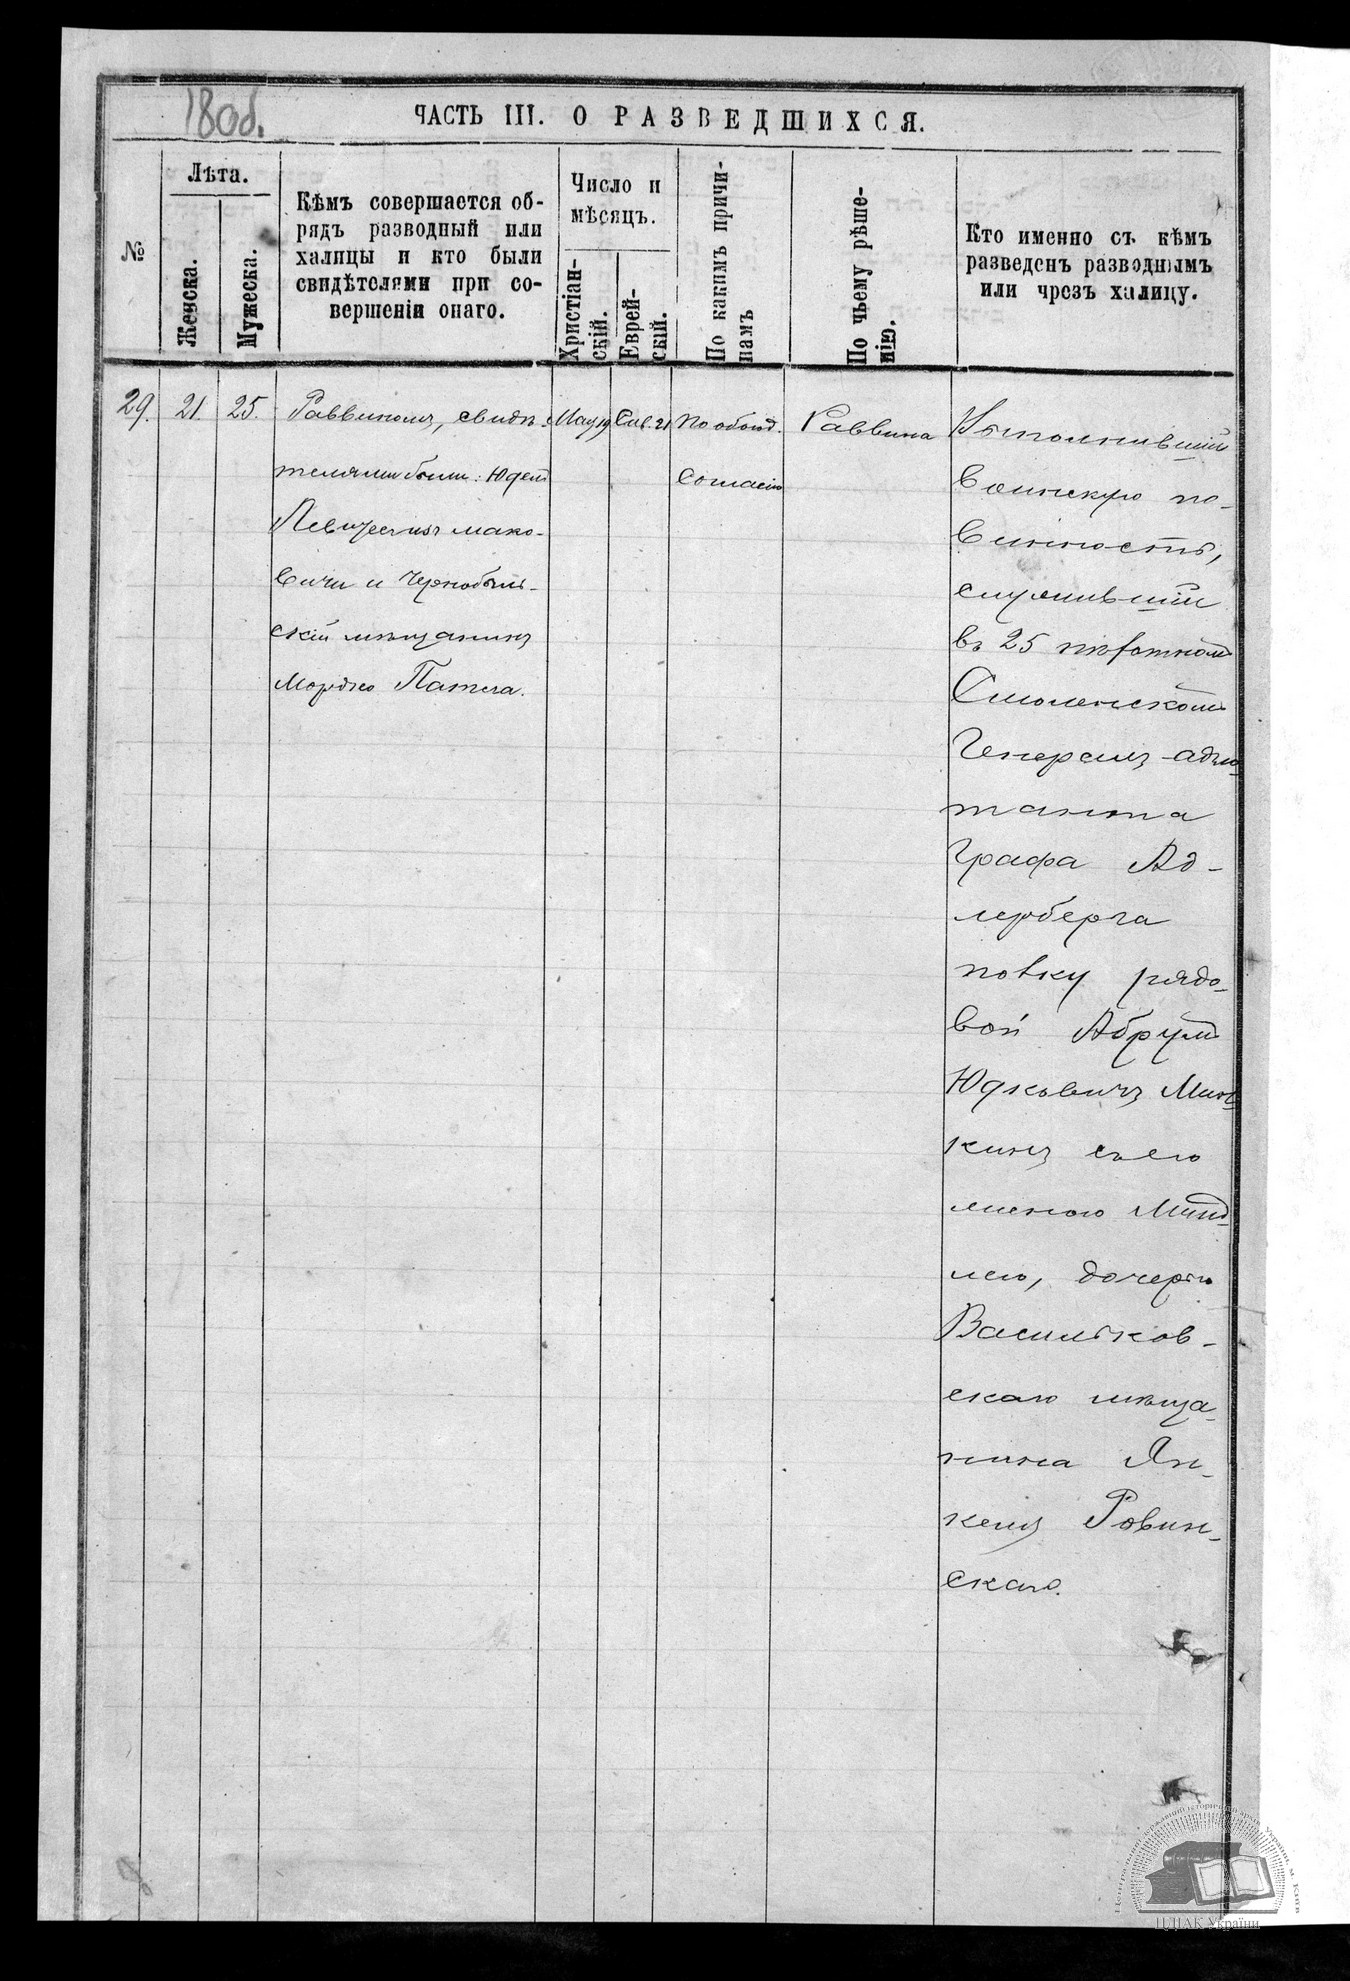 180об.
ЧАСТЬ III. О РАЗВЕДШИХСЯ.
№
Лѣта.
Женска.
Мужеска.
Кѣмъ совершается об-
рядъ разводный или
халицы и кто были
свидѣтелями при со-
вершеніи онаго.
Число и
мѣсяцъ.
Христіан-
скій.
Еврей-
скій.
По какимъ причи-
намъ
По чьему рѣше-
нію.
Кто именно съ кѣмъ
разведенъ разводнымъ
или чрезъ халицу.
29. 21. 25.
Раввиномъ, свидѣ-
телями были: Юдель
мако-
вичи и Чернобыль-
скій мѣщанинъ
Мордко
Мая 19 Сив. 21
По обоюд.
согласію
Раввина
Выполнившій
воинскую по-
винность,
служившій
въ 25 пѣхотномъ
Смоленскомъ
Генералъ-адъю-
танта
Графа Ад-
лерберга
полку рядо-
вой Абрумъ
Юдковичъ Минь-
кинъ съ его
женою Минд-
лею, дочерью
Васильков-
скаго мѣща-
нина Ян-
келя Ровин-
скаго.
Центральний державний історичний архів України, м. Київ
ЦДІАК України